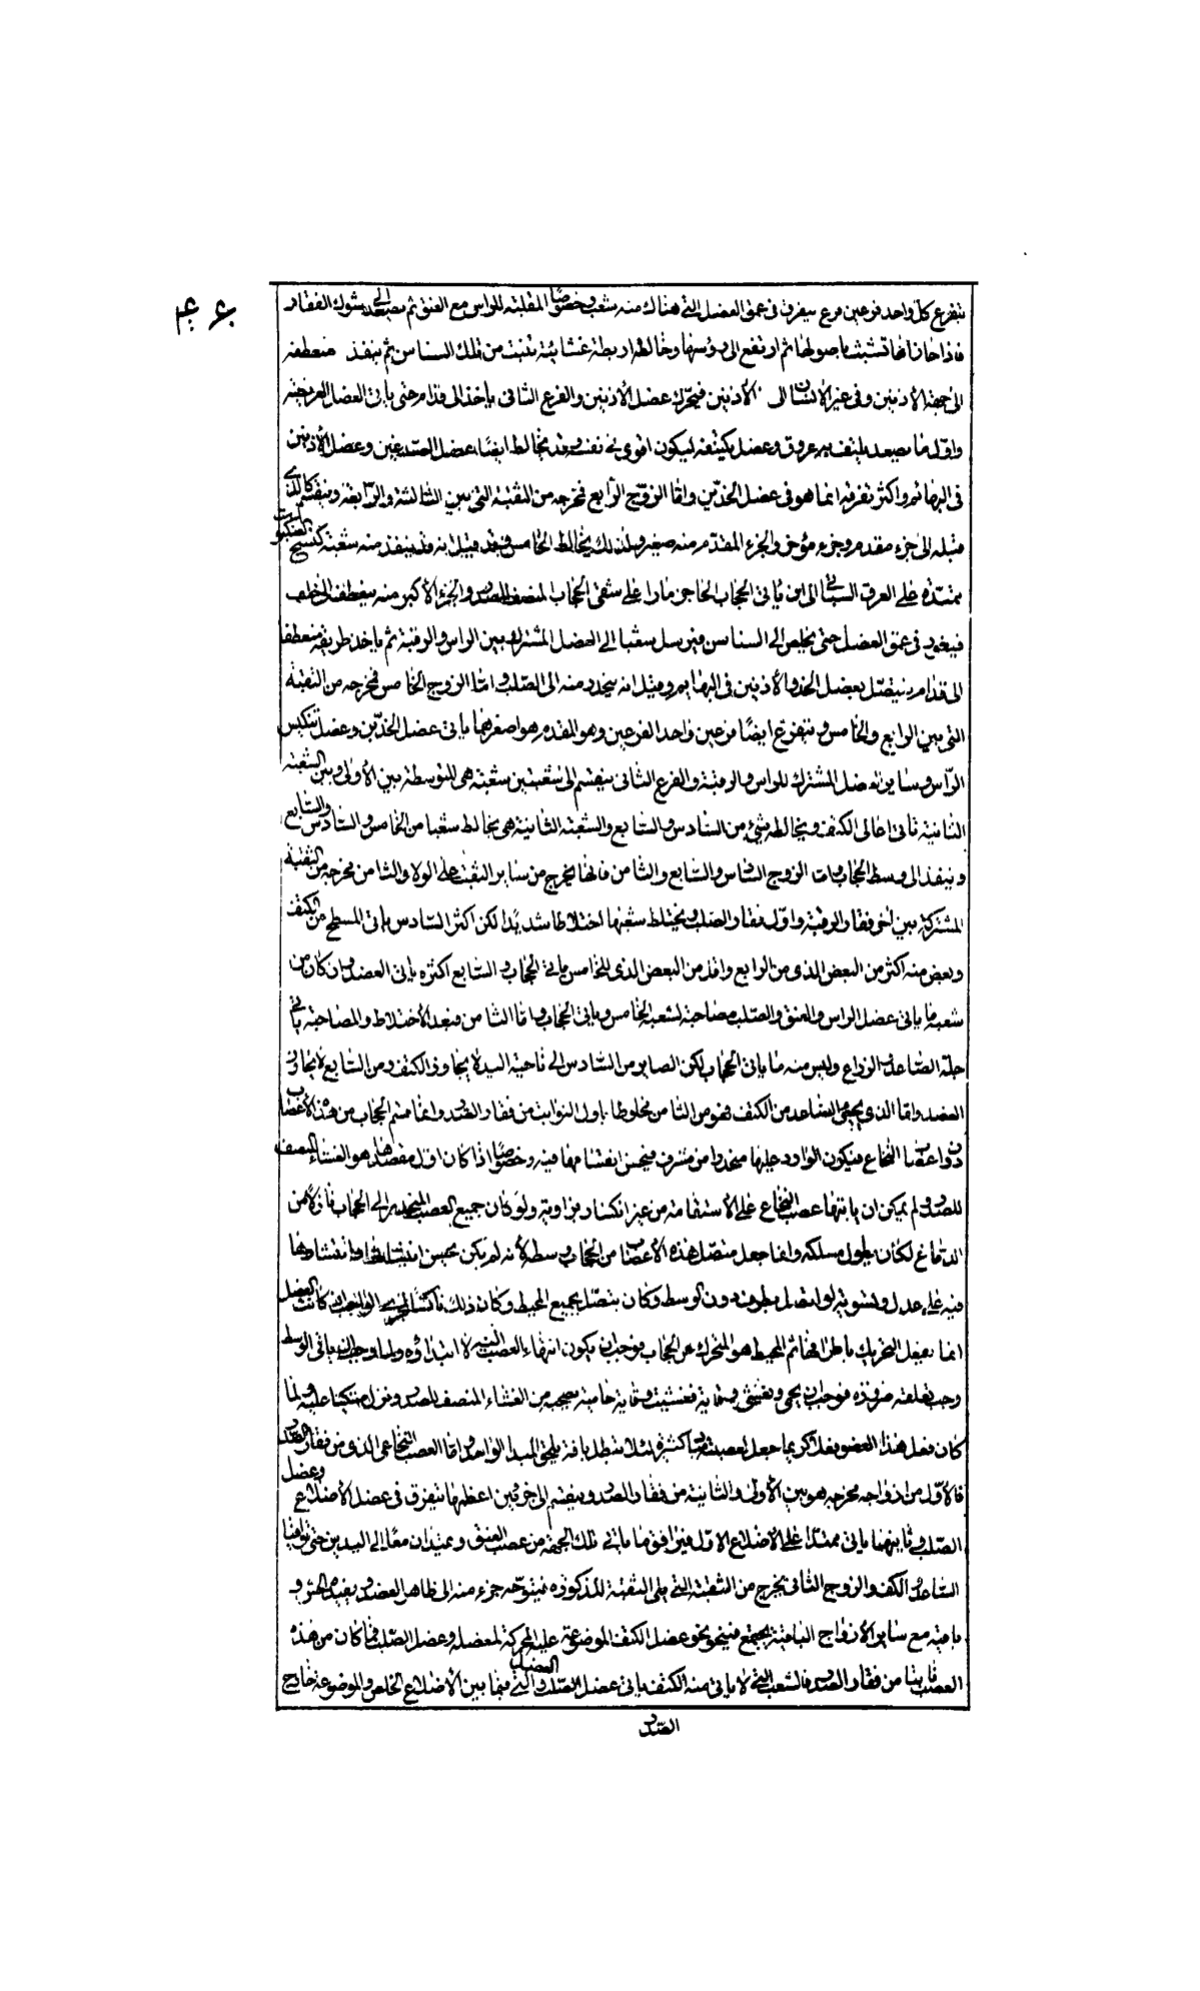 يتفرع كل واحد فرعين فرع يتفرق في عمق العضل التي هناك منه شعب وخصوصا المقلبة للراس مع العنق ثم يصعد الى شوك الفقار
فاذا حاذاها تشبث باصولها ثم ارتفع الى رؤسها وخالطه اربطة غشائية تنبت من تلك السناسن ثم ينفذ منعطفه
الى جهة الأذنين وفي غير الانسان الى الأذنين فيحرك عضل الأذنين والفرع الثاني ياخذ الى قدام حتى ياتي العضل العريضة
واول ما يصعد يلتف به عروق وعضل تكتنفه ليكون اقوى في نفسه وقد يخالط ايضا عضل الصدغين وعضل الأذنين
في البهائم واكثر تفرقه انما هو في عضل الخدين واما الزوج الرابع فمخرجه من الثقبة التي بين الثالثة والرابعة وينقسم كالذي
قبله الى جزء مقدم وجزء مؤخر والجزء المقدم منه صغير ولذلك يخالط الخامس وقد قيل انه قد ينفذ منه شعبة كنسج العنكبوت
ممتدة على العرق السباتي الى ان ياتي الحجاب الحاجز مارا على شقي الحجاب المنصف للصدر والجزء الأكبر منه ينعطف الى خلف
فيغور في عمق العضل حتى يخلص الى السناسن فيرسل شعبا الى العضل المشترك بين الراس والرقبة ثم ياخذ طريقه منعطفا
الى قدام فيتصل بعضل الخد والأذنين في البهايم وقيل انه ينحدر منه الى الصلب واما الزوج الخامس فمخرجه من الثقبة
التي بين الرابع والخامس ويتفرع ايضا فرعين واحد الفرعين وهو المقدم هو اصغرهما ياتي عضل الخدين وعضل تنكيس
الراس وساير العضل المشترك للراس والرقبة والفرع الثاني ينقسم الى شعبتين شعبة هي المتوسطة بين الأولى وبين الشعبة
الثانية تاتي اعالي الكتف ويخالطه شيء من السادس والسابع والشعبة الثانية هي يخالط شعبا من الخامس والسادس والسابع
وينفذ الى وسط الحجاب واما الزوج السادس والسابع والثامن فانها تخرج من ساير الثقب على الولاء والثامن مخرجه من الثقبة
المشتركة بين اخر فقار الرقبة واول فقار الصلب ويختلط شعبها اختلاطا شديدا لكن اكثر السادس ياتي السطح من الكتف
وبعض منه اكثر من البعض الذي من الرابع واقل من البعض الذي للخامس ياتي الحجاب والسابع اكثره ياتي العضد وان كان من
شعبه ما ياتي عضل الراس والعنق والصلب مصاحبة لشعبة الخامس وياتي الحجاب واما الثامن فبعد الأختلاط والمصاحبة ياتي
جلد الساعد والذراع وليس منه ما ياتي الحجاب لكن الصاير من السادس الى ناحية اليد لا يجاوز الكتف ومن السابع لا يجاوز
العضد واما الذي يجيء الساعد من الكتف فهو من الثامن مخلوطا باول النوابت من فقار الصدر وانما قسم الحجاب من هذه الأعصاب
دون اعصاب النخاع ليكون الوارد عليها منحدرا من مشرف فيحسن انقسامها فيه وخصوصا اذا كان اول مقصدها هو الغشاء المنصف
للصدر ولم يمكن ان ياتيها عصب النخاع على الأستقامة من غير انكسار بزاوية ولو كان جميع العصب المنحدر الى الحجاب نازلا من
الدماغ لكان يطول مسلكه وانما جعل متصل هذه الأعصاب من الحجاب وسطه لأنه لم يكن يحسن انبثاثها وانتشارها
فيه على عدل وتسوية لو اتصل بطرف دون الوسط وكان يتصل بجميع المحيط وكان ذلك ناكسا للمجرى الواجب اذ كانت العضل
انما يفعل التحريك باطرافها ثم المحيط هو المتحرك من الحجاب فوجب ان يكون انتهاء العصب اليه لا ابتداؤه ولما وجب ان ياتي الوسط
وجب تعلقه ضرورة فوجب ان يحمى ويغشى وقاية فغشيت وقاية حامية بصحبة من الغشاء المنصف للصدر ونزل متكئا عليه ولما
كان فعل هذا العضو فعلا كريما جعل لعصبه مبادي كثيرة لئلا تبطل بافة يلحق المبدا الواحد واما العصب النخاعي الذي من فقار الصدر
فالأول من ازواجه مخرجه هو بين الأولى والثانية من فقار الصدر وينقسم الى جزئين اعظمها يتفرق في عضل الأضلاع وعضل
الصلب وثانيهما ياتي ممتدا على الاضلاع الاول فيرافق ثامن عصب العنق ويمتدان معا الى اليدين حتى يوافيا
الساعد والكف والزوج الثاني يخرج من الثقبة التي يلي الثقبة المذكورة فيتوجه جزء منه الى ظاهر العضد ويفيده الحس و
باقيه مع ساير الأزواج الباقية يجتمع فينحو نحو عضل الكتف الموضوعة عليه المحركة لمفصله وعضل الصلب فما كان من هذه
العصب نابتا من فقار الصدر فالشعب التي لا ياتي منه الكتف ياتي عضل الصلب والعضل التي فيما بين الأضلاع الخلص والموضوعة خارج
الصدر